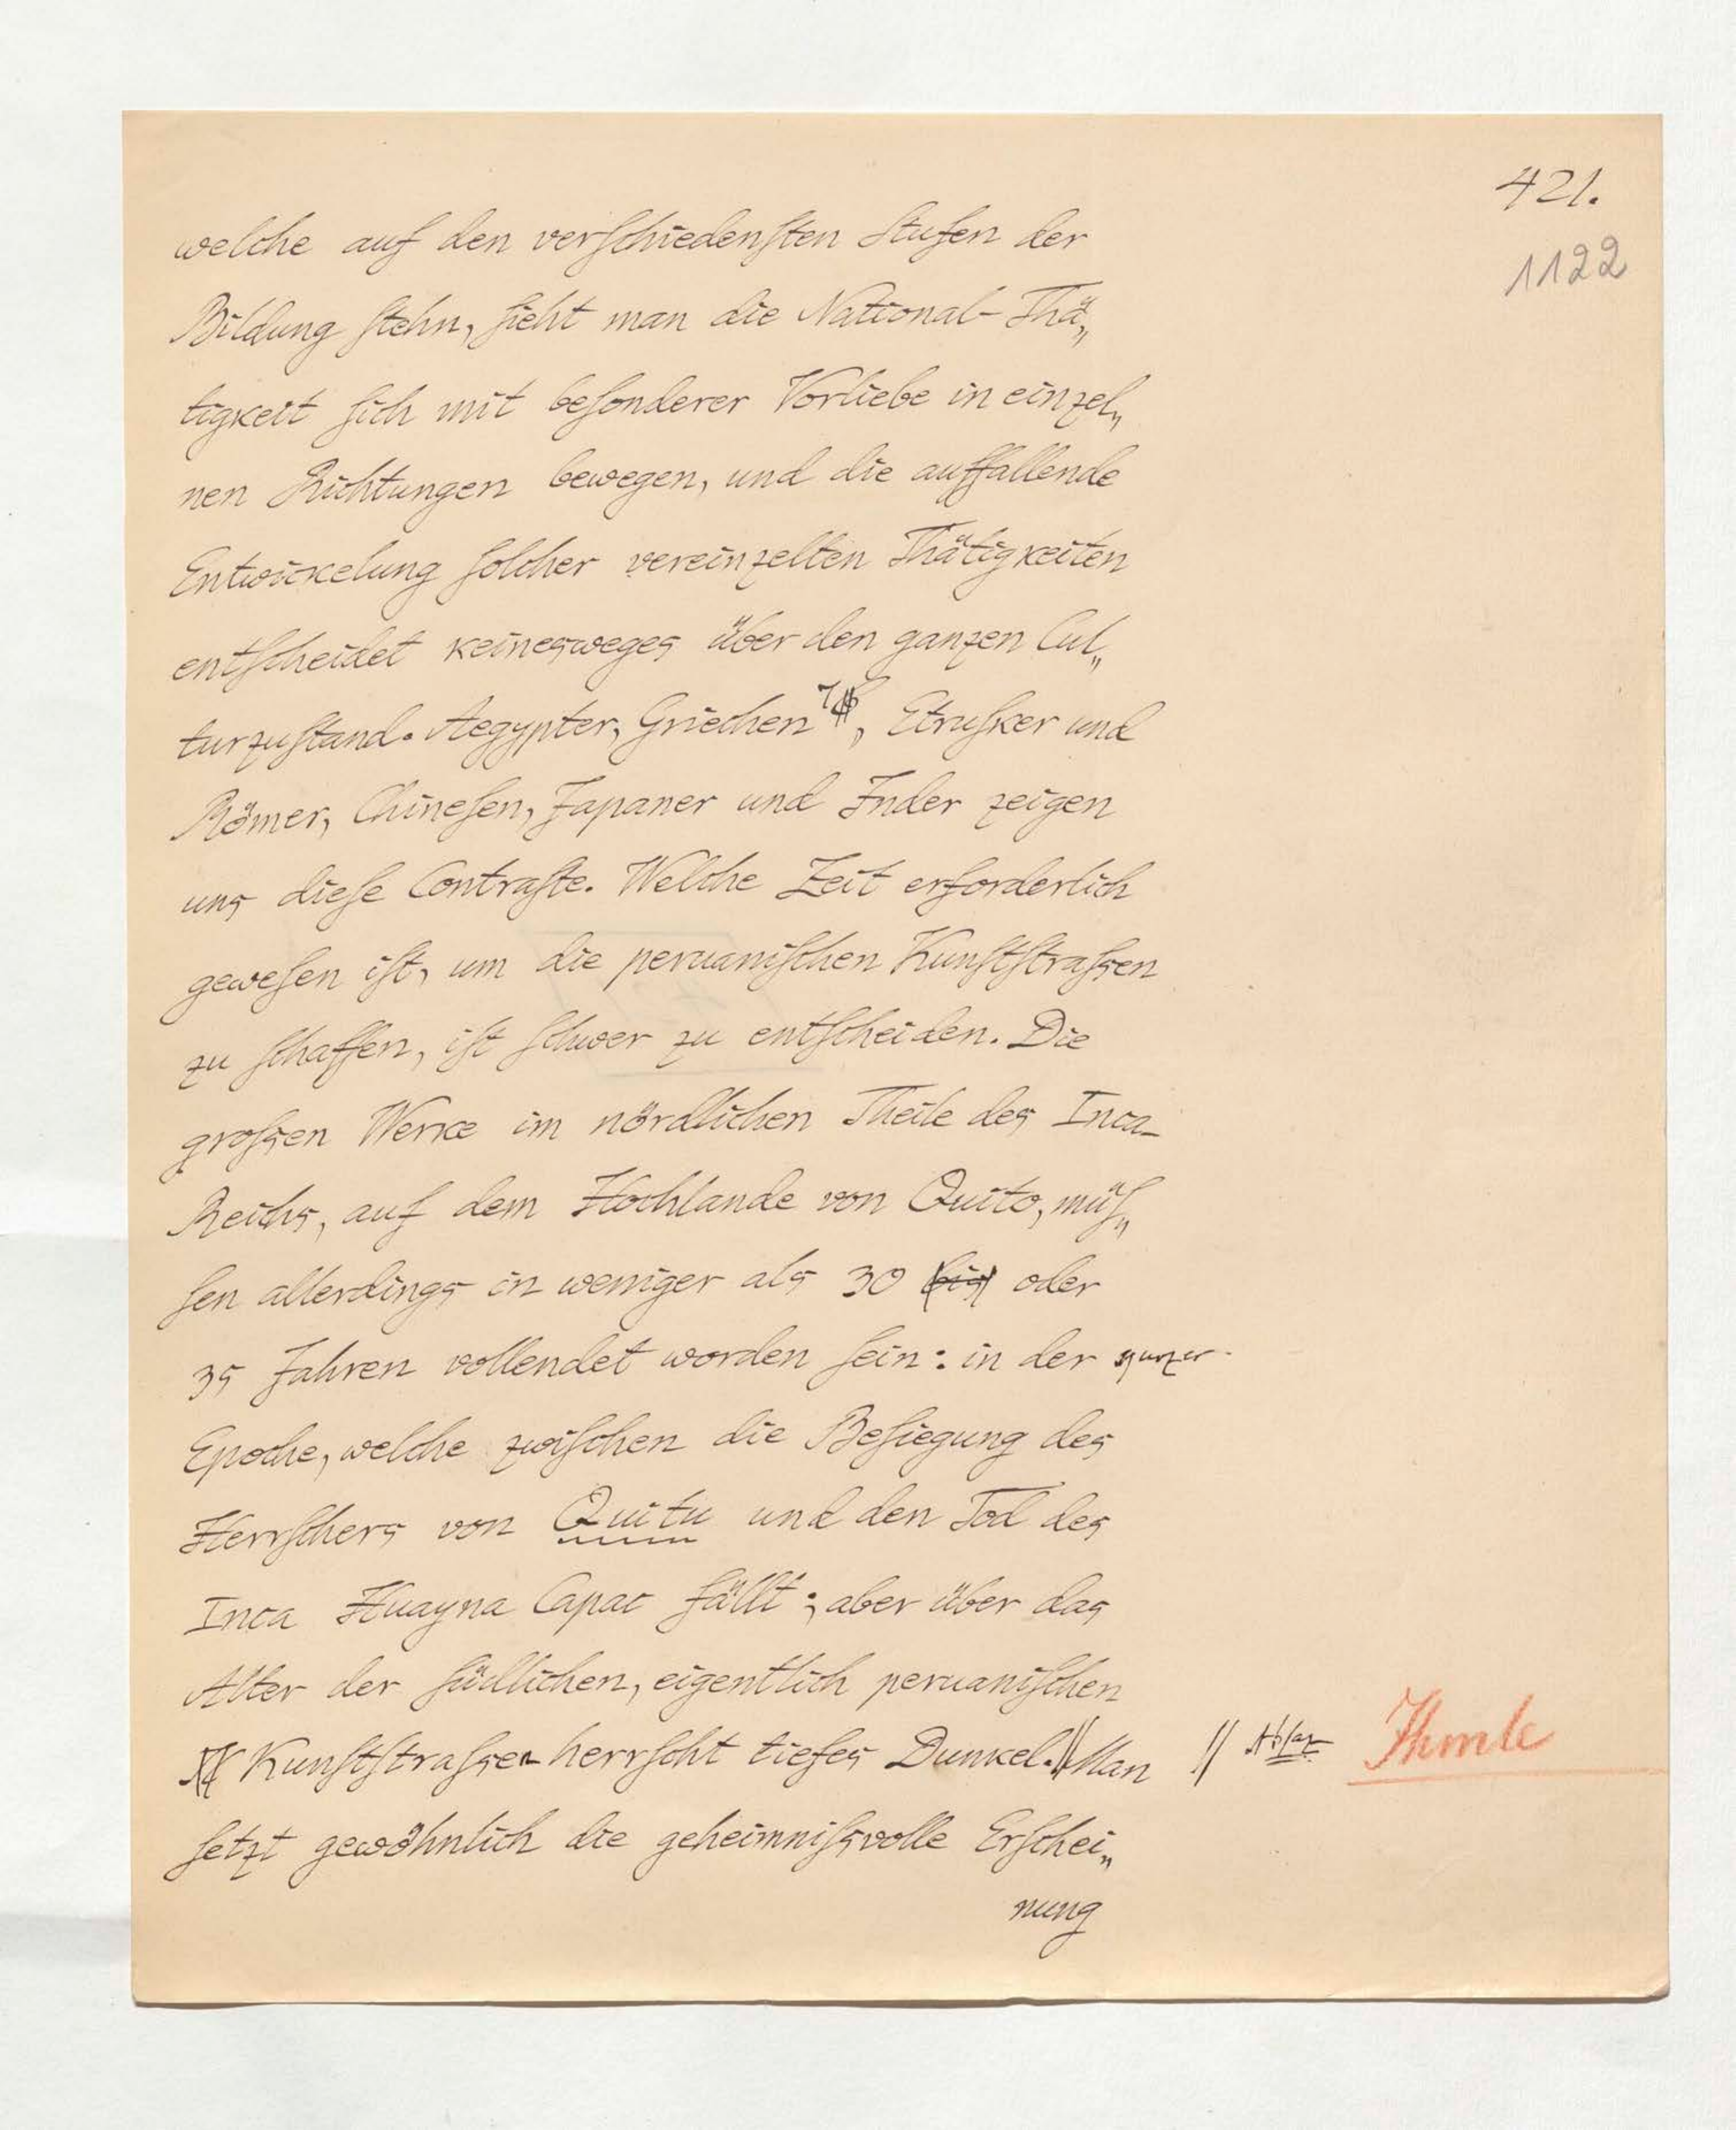 421.
1122
welche auf den verſchiedenſten Stufen der
Bildung ſtehn, ſieht man die National-Thä„
tigkeit ſich mit beſonderer Vorliebe in einzel„
nen Richtungen bewegen, und die auffallende
Entwickelung ſolcher vereinzelten Thätigkeiten
entſcheidet keinesweges über den ganzen Cul„
turzuſtand. Aegypter, Griechen, Etruſker und
Römer, Chineſen, Japaner und Inder zeigen
uns dieſe Contraſte. Welche Zeit erforderlich
geweſen iſt, um die peruaniſchen Kunſtſtraſsen
zu ſchaffen, iſt ſchwer zu entſcheiden. Die
groſsen Werke im nördlichen Theile des Inca-
Reichs, auf dem Hochlande von Quito, müſ„
ſen allerdings in weniger als 30 bis oder
35 Jahren vollendet worden ſein: in der kurzen
Epoche, welche zwiſchen die Beſiegung des
Herrſchers von Quitu und den Tod des
Inca Huayna Capac fällt; aber über das
Alter der ſüdlichen, eigentlich peruaniſchen
Kunſtſtraſsen herrſcht tiefes Dunkel. // Man // Abſaz Ihmle
ſetzt gewöhnlich die geheimniſsvolle Erſchei„
nung